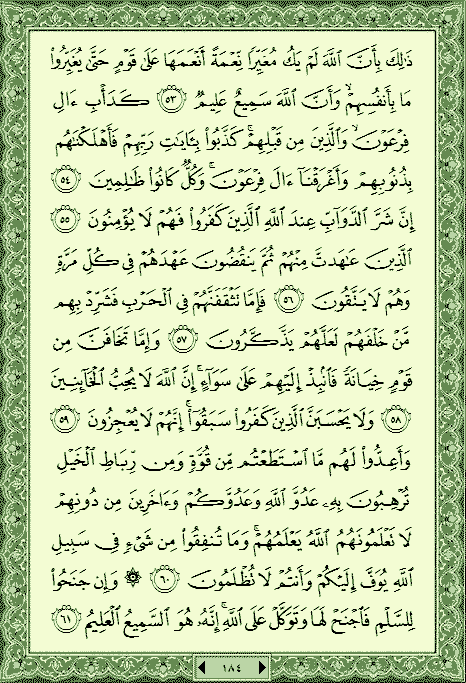 ذَٰلِكَ بِأَنَّ ٱللَّهَ لَمْ يَكُ مُغَيِّرًا نِّعْمَةً أَنْعَمَهَا عَلَىٰ قَوْمٍ حَتَّىٰ يُغَيِّرُوا۟
مَا بِأَنفُسِهِمْ ۙ وَأَنَّ ٱللَّهَ سَمِيعٌ عَلِيمٌ ٥٣ كَدَأْبِ ءَالِ
فِرْعَوْنَ ۙ وَٱلَّذِينَ مِن قَبْلِهِمْ ۚ كَذَّبُوا۟ بِـَٔايَـٰتِ رَبِّهِمْ فَأَهْلَكْنَـٰهُم
بِذُنُوبِهِمْ وَأَغْرَقْنَآ ءَالَ فِرْعَوْنَ ۚ وَكُلٌّ كَانُوا۟ ظَـٰلِمِينَ ٥٤
إِنَّ شَرَّ ٱلدَّوَآبِّ عِندَ ٱللَّهِ ٱلَّذِينَ كَفَرُوا۟ فَهُمْ لَا يُؤْمِنُونَ ٥٥
ٱلَّذِينَ عَـٰهَدتَّ مِنْهُمْ ثُمَّ يَنقُضُونَ عَهْدَهُمْ فِى كُلِّ مَرَّةٍ
وَهُمْ لَا يَتَّقُونَ ٥٦ فَإِمَّا تَثْقَفَنَّهُمْ فِى ٱلْحَرْبِ فَشَرِّدْ بِهِم
مَّنْ خَلْفَهُمْ لَعَلَّهُمْ يَذَّكَّرُونَ ٥٧ وَإِمَّا تَخَافَنَّ مِن
قَوْمٍ خِيَانَةً فَٱنۢبِذْ إِلَيْهِمْ عَلَىٰ سَوَآءٍ ۚ إِنَّ ٱللَّهَ لَا يُحِبُّ ٱلْخَآئِنِينَ
٥٨ وَلَا يَحْسَبَنَّ ٱلَّذِينَ كَفَرُوا۟ سَبَقُوٓا۟ ۚ إِنَّهُمْ لَا يُعْجِزُونَ ٥٩
وَأَعِدُّوا۟ لَهُم مَّا ٱسْتَطَعْتُم مِّن قُوَّةٍ وَمِن رِّبَاطِ ٱلْخَيْلِ
تُرْهِبُونَ بِهِۦ عَدُوَّ ٱللَّهِ وَعَدُوَّكُمْ وَءَاخَرِينَ مِن دُونِهِمْ
لَا تَعْلَمُونَهُمُ ٱللَّهُ يَعْلَمُهُمْ ۚ وَمَا تُنفِقُوا۟ مِن شَىْءٍ فِى سَبِيلِ
ٱللَّهِ يُوَفَّ إِلَيْكُمْ وَأَنتُمْ لَا تُظْلَمُونَ ٦٠ ۞ وَإِن جَنَحُوا۟
لِلسَّلْمِ فَٱجْنَحْ لَهَا وَتَوَكَّلْ عَلَى ٱللَّهِ ۚ إِنَّهُۥ هُوَ ٱلسَّمِيعُ ٱلْعَلِيمُ ٦١
١٨٤